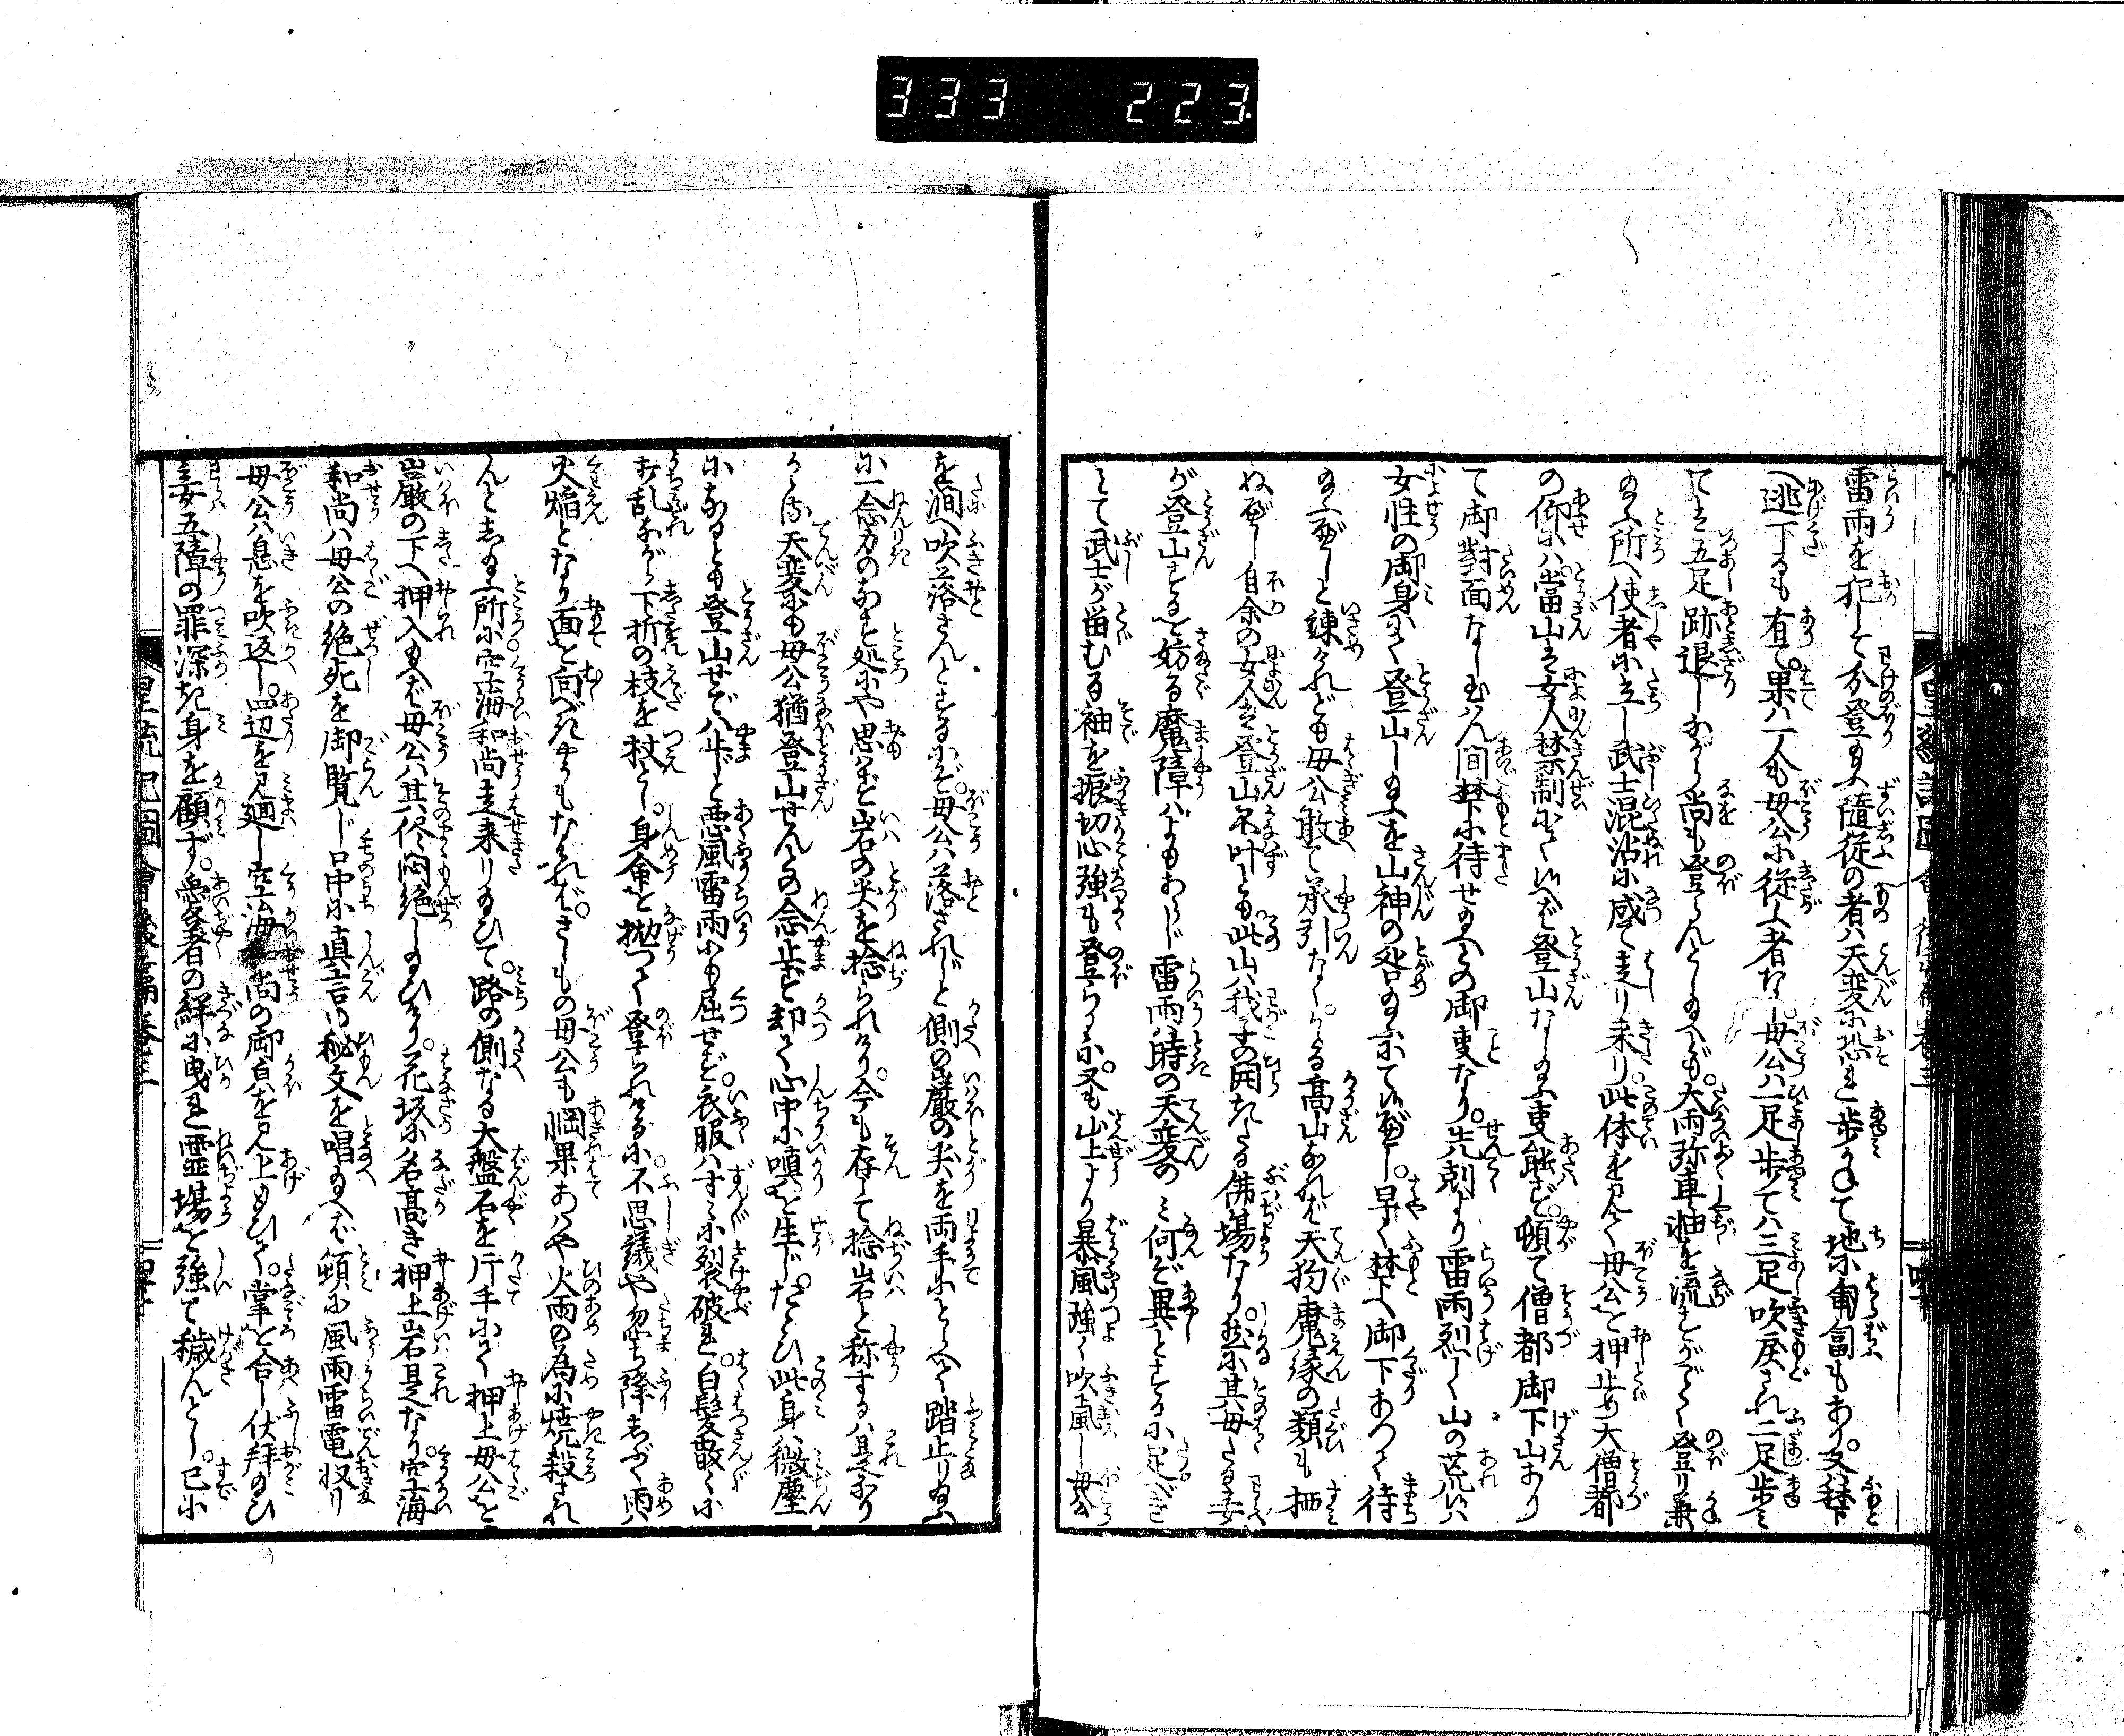 333 223
雷雨を犯して分登り玉ふ随従の者ハ天変に恐れ歩かねて地に匍匐もあり又麓
へ逃下るも有て果ハ一人も母公に従ふ者なし母公ハ一足歩てハ三足吹戻され二足歩ミ
てハ五足跡退しながら尚も登らんとし玉へども大雨弥車軸を流すごとく登り兼
玉ふ所へ使者に立し武士混沾に成て走り来り此体を見て母公を押止め大僧都
の仰にハ當山ハ女人禁制にて候へバ登山なし玉ふ事能ず頓て僧都御下山あり
て御対面なし玉ハん間麓に待せ玉へとの御事なり先刻より雷雨烈しく山の荒候ハ
女性の御身にて登山し玉ふを山神の咎め玉ふにて候べし早く麓へ御下あつて待
玉ふべしと諫けれども母公敢て承引なくかゝる高山なれバ天狗魔縁の類も栖
ぬべし自余の女人ハ登山不叶とも此山ハ我子の開きたる佛場なり然に其母たる妾
が登山するを妨る魔障ハよもあらじ雷雨ハ時の天変のミ何ぞ異とするに足べき
とて武士が留むる袖を振切心強も登らるゝに又も山上より暴風強く吹颪し母公
を澗へ吹落さんとするにぞ母公ハ落されじと側の巌の尖を両手にとらへて踏止り玉ふ
に一念力のなす処にや思はず岩の尖を捻られけり今も存して捻岩と称するハ是なり
かゝる天変にも母公猶登山せんとの念止ず却て心中に嗔を生じたとひ此身ハ微塵
になるとも登山せでハ止じと悪風雷雨にも屈せず衣服ハすゞに裂破れ白髪散々に
打乱ながら下折の枝を杖とし身命を抛つて登られけるに不思議や忽ち降しぶく雨ハ
火焔となり面を向べきやうもなければさしもの母公も惘果あハや火雨の為に焼殺され
んとし玉ふ所に空海和尚走来り玉ひて路の側なる大盤石を片手にて押上母公を
岩巌の下へ押入玉へバ母公ハ其侭悶絶し玉ひけり花坂に名高き押上岩是なり空海
和尚ハ母公の絶死を御覧じ口中に真言の秘文を唱玉へバ頓に風雨雷電収り
母公ハ息を吹返し四辺を見廻し空海和尚の御皃を見上玉ひて掌を合し伏拝玉ひ
妾五障の罪深き身を顧ず愛着の絆に曳れ霊場を強て穢んとし已に